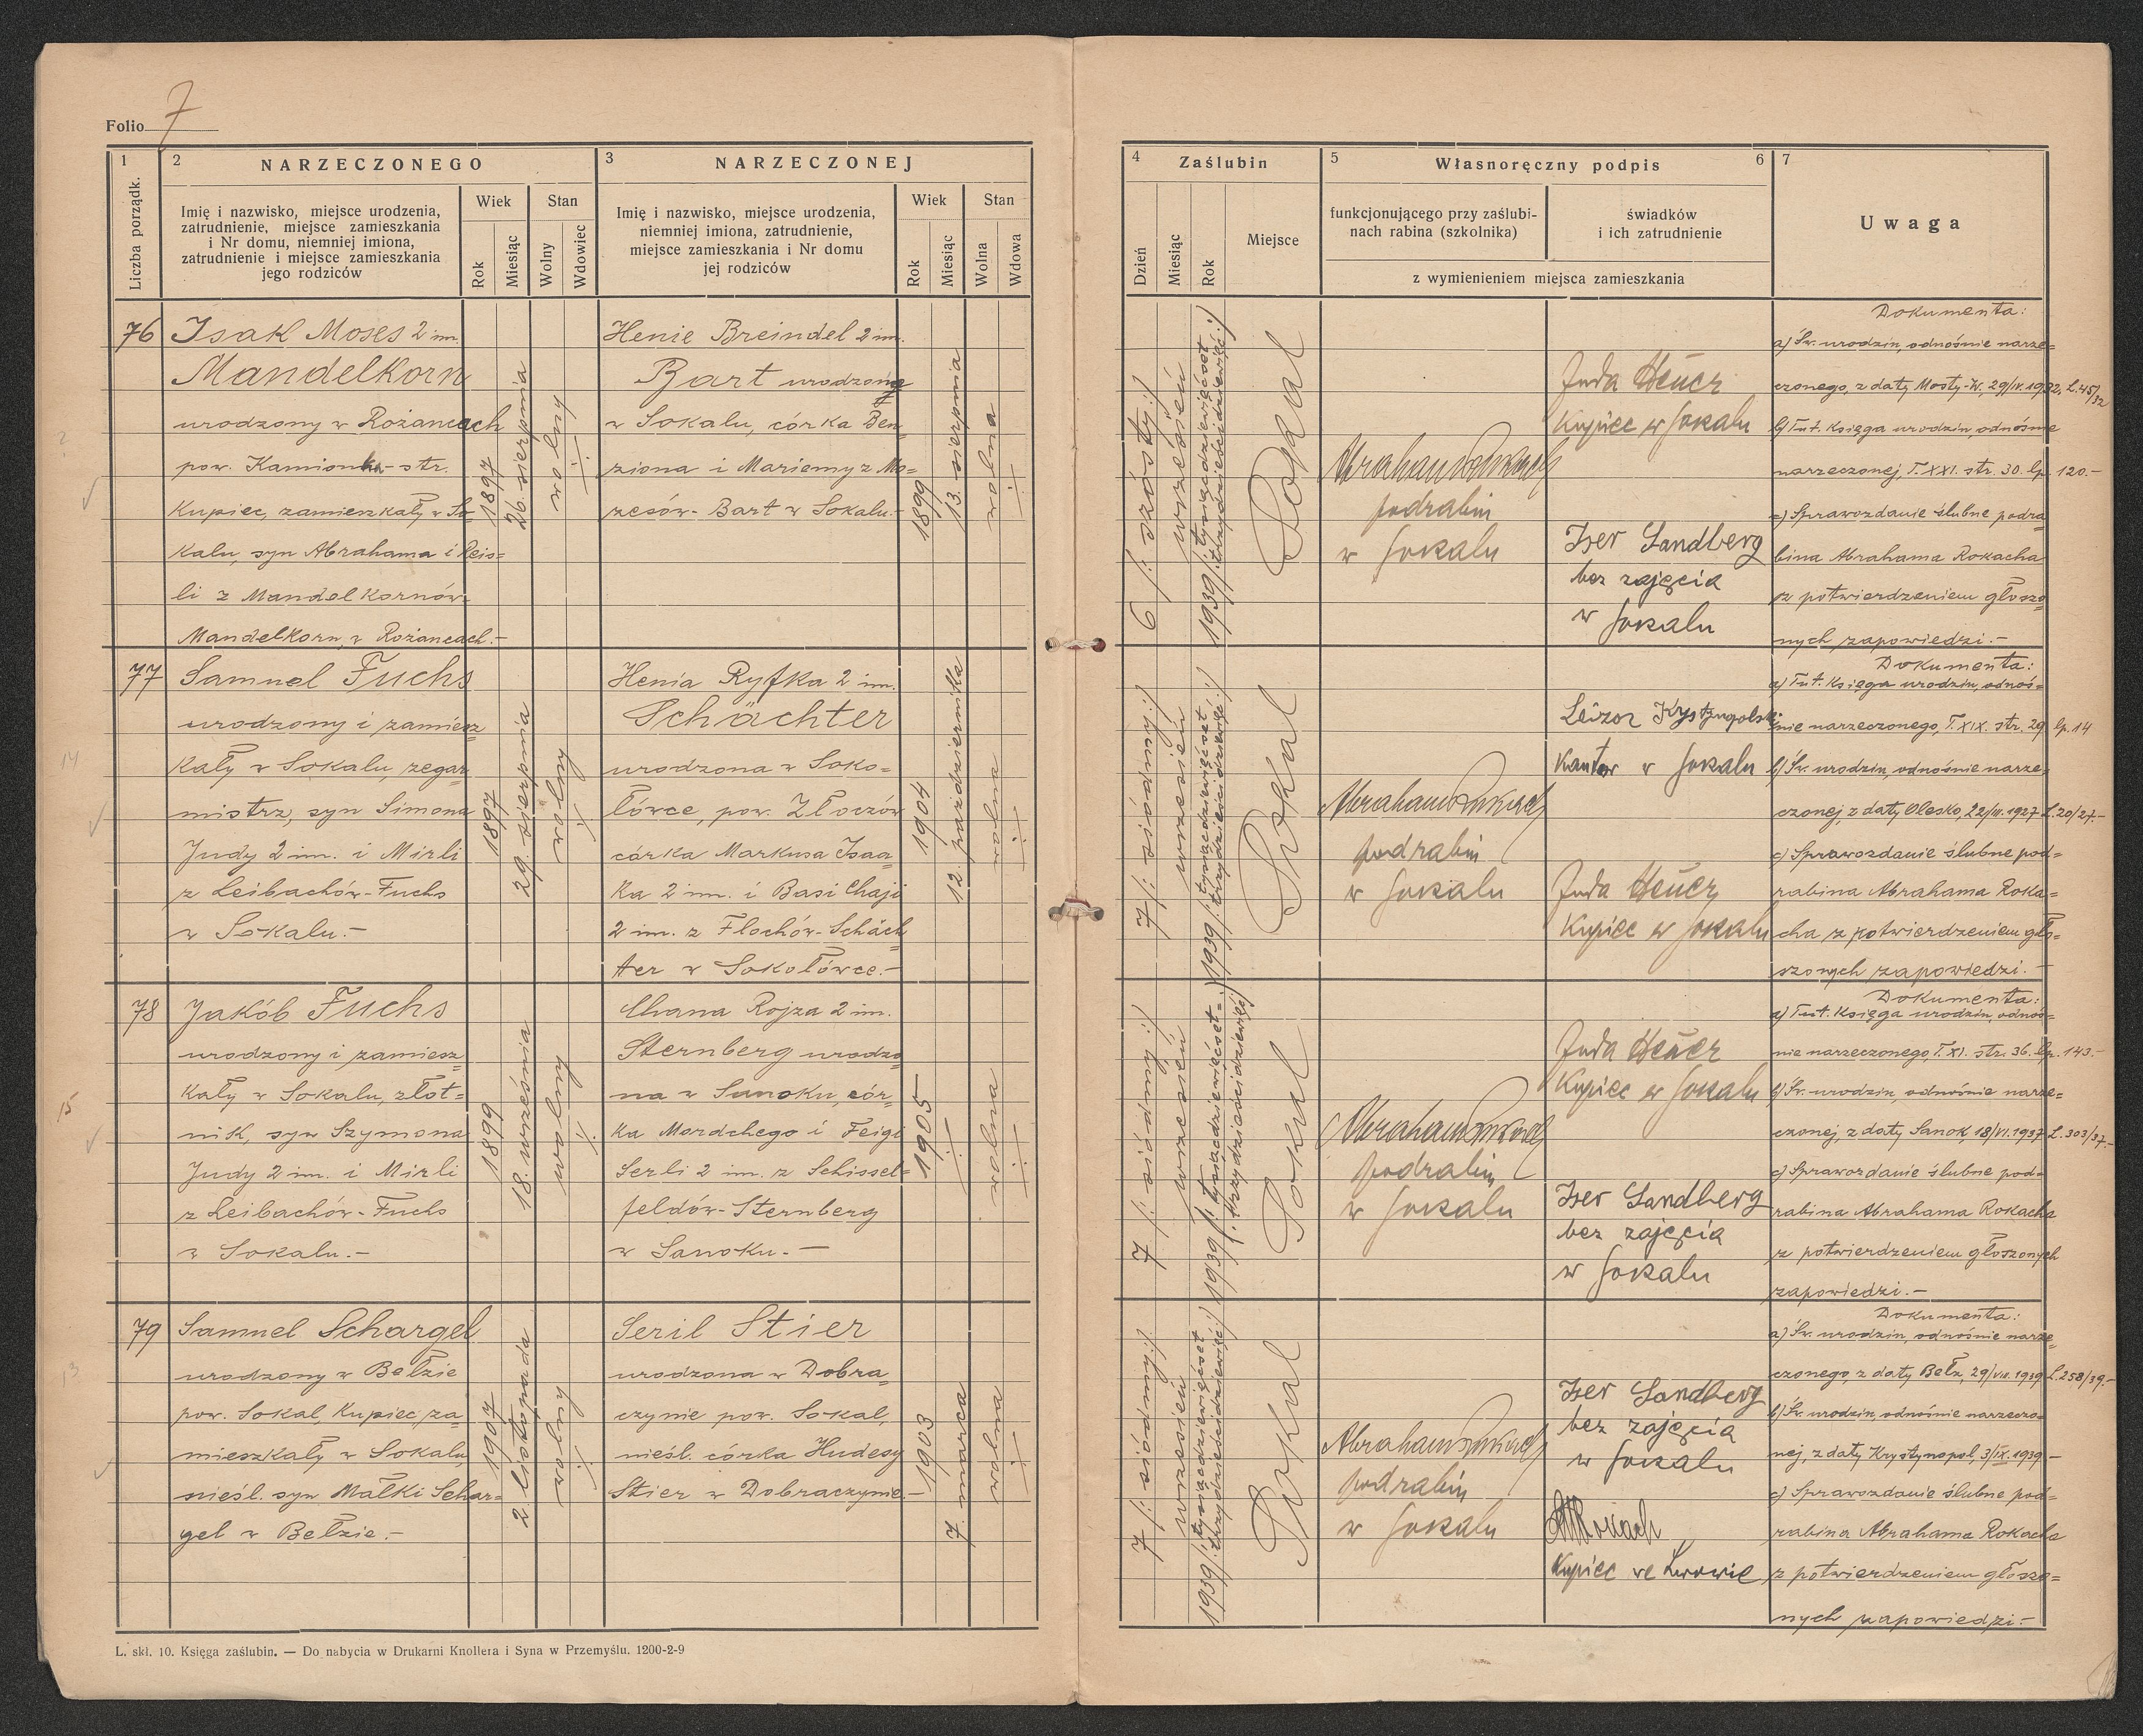 Folio 7
1
2 NARZECZONEGO
3 NARZECZONEJ
Liczba porządk.
Imię i nazwisko, miejsce urodzenia,
zatrudnienie, miejsce zamieszkania
i Nr domu, niemniej imiona,
zatrudnienie i miejsce zamieszkania
jego rodziców
Wiek
Stan
Rok
Miesiąc
Wolny
Wdowiec
Imię i nazwisko, miejsce urodzenia,
niemniej imiona, zatrudnienie,
miejsce zamieszkania i Nr domu
jej rodziców
Wiek
Stan
Rok
Miesiąc
Wolna
Wdowa
4 Zaślubin
5 Własnoręczny podpis 6
7
Dzień
Miesiąc
Rok
Miejsce
funkcjonującego przy zaślubi-
nach rabina (szkolnika)
świadków
i ich zatrudnienie
z wymienieniem miejsca zamieszkania
Uwaga
76
Isak Moses 2 im.
Mandelkorn
urodzony w Rożancach
pow. Kamionka-str.
Kupiec, zamieszkały w So-
kalu, syn Abrahama i Reis-
li z Mandelkornów-
Mandelkorn w Rożancach.-
1897
26. sierpnia
wolny
Henie Breindel 2 im.
Bart urodzona
w Sokalu, córka Ben-
ziona i Mariemy z Mo-
zesów- Bart w Sokalu.-
1899
13. sierpnia
wolna
6 /: szósty :/
wrzesień
1939 /: tysiącdziewięćset
trzydzieścidziewięć :/
Sokal
Abraham Rokach
podrabin
w Sokalu
Juda Heuer
Kupiec w Sokalu
Iser Sandberg
bez zajęcia
w Sokalu
Dokumenta:
a) Św. urodzin, odnośnie narze-
czonego, z daty Mosty-W. 29/IV.1932, L.45/32
b) Tut. Księga urodzin, odnośnie
narzeczonej, T. XXI. str. 30. lp. 120.-
c) Sprawozdanie ślubne podra-
bina Abrahama Rokacha
z potwierdzeniem głoszo-
nych zapowiedzi.-
77
Samuel Fuchs
urodzony i zamiesz-
kały w Sokalu, zegar-
mistrz, syn Simona
Judy 2 im. i Mirli
z Leibachów-Fuchs
w Sokalu.-
1897
29. sierpnia
wolny
Henia Ryfka 2 im.
Schächter
urodzona w Soko-
łówce, pow. Złoczów
córka Markusa Isaa-
ka 2 im. i Basi Chaji
2 im. z Flochów-Schäch-
ter w Sokołówce.-
1904
12. października
wolna
7 /: siódmy :/
wrzesień
1939 /: tysiącdziewięćset
trzydzieścidziewięć :/
Sokal
Abraham Rokach
podrabin
w Sokalu
Leizor Krystynopolski
Kantor w Sokalu
Juda Heuer
Kupiec w Sokalu
Dokumenta:
a) Tut. Księga urodzin, odnoś-
nie narzeczonego, T. XIX. str. 29. lp. 14
b) Św. urodzin, odnośnie narze-
czonej, z daty Olesko, 22/III.1927 L.20/27.-
c) Sprawozdanie ślubne pod-
rabina Abrahama Roka-
cha z potwierdzeniem gło-
szonych zapowiedzi.-
78
Jakób Fuchs
urodzony i zamiesz-
kały w Sokalu, złot-
nik, syn Szymona
Judy 2 im. i Mirli
z Leibachów-Fuchs
w Sokalu.-
1899
18. września
wolny
Chana Rojza 2 im.
Sternberg urodzo-
na w Sanoku, cór-
ka Mordchego i Feigi
Serli 2 im. z Schissel-
feldów-Sternberg
w Sanoku.-
1905
wolna
7 /: siódmy :/
wrzesień
1939 /: tysiącdziewięćset-
trzydzieścidziewięć :/
Sokal
Abraham Rokach
podrabin
w Sokalu
Juda Heuer
Kupiec w Sokalu
Iser Sandberg
bez zajęcia
w Sokalu
Dokumenta:
a) Tut. Księga urodzin, odnoś-
nie narzeczonego, T. XI. str. 36. lp. 143.-
b) Św. urodzin, odnośnie narze-
czonej, z daty Sanok, 18/VI.1937 L.303/37.-
c) Sprawozdanie ślubne pod-
rabina Abrahama Rokacha
z potwierdzeniem głoszonych
zapowiedzi.-
79
Samuel Schargel
urodzony w Bełzie
pow. Sokal, Kupiec, za-
mieszkały w Sokalu
nieśl. syn Małki Schar-
gel w Bełzie.-
1907
2. listopada
wolny
Seril Stier
urodzona w Dobra-
czynie pow. Sokal,
nieśl. córka Hudesy
Stier w Dobraczynie.-
1903
7. marca
wolna
7 /: siódmy :/
wrzesień
1939 /: tysiącdziewięćset
trzydzieścidziewięć :/
Sokal
Abraham Rokach
podrabin
w Sokalu
Iser Sandberg
bez zajęcia
w Sokalu
Rokach
Kupiec we Lwowie
Dokumenta:
a) Św. urodzin, odnośnie narze-
czonego, z daty Bełz, 29/VIII.1939 L.258/39.-
b) Św. urodzin, odnośnie narzeczo-
nej, z daty Krystynopol, 3/IX.1939.-
c) Sprawozdanie ślubne pod-
rabina Abrahama Rokacha
z potwierdzeniem głoszo-
nych zapowiedzi.-
14
15
13
L. skł. 10. Księga zaślubin. — Do nabycia w Drukarni Knollera i Syna w Przemyślu. 1200-2-9